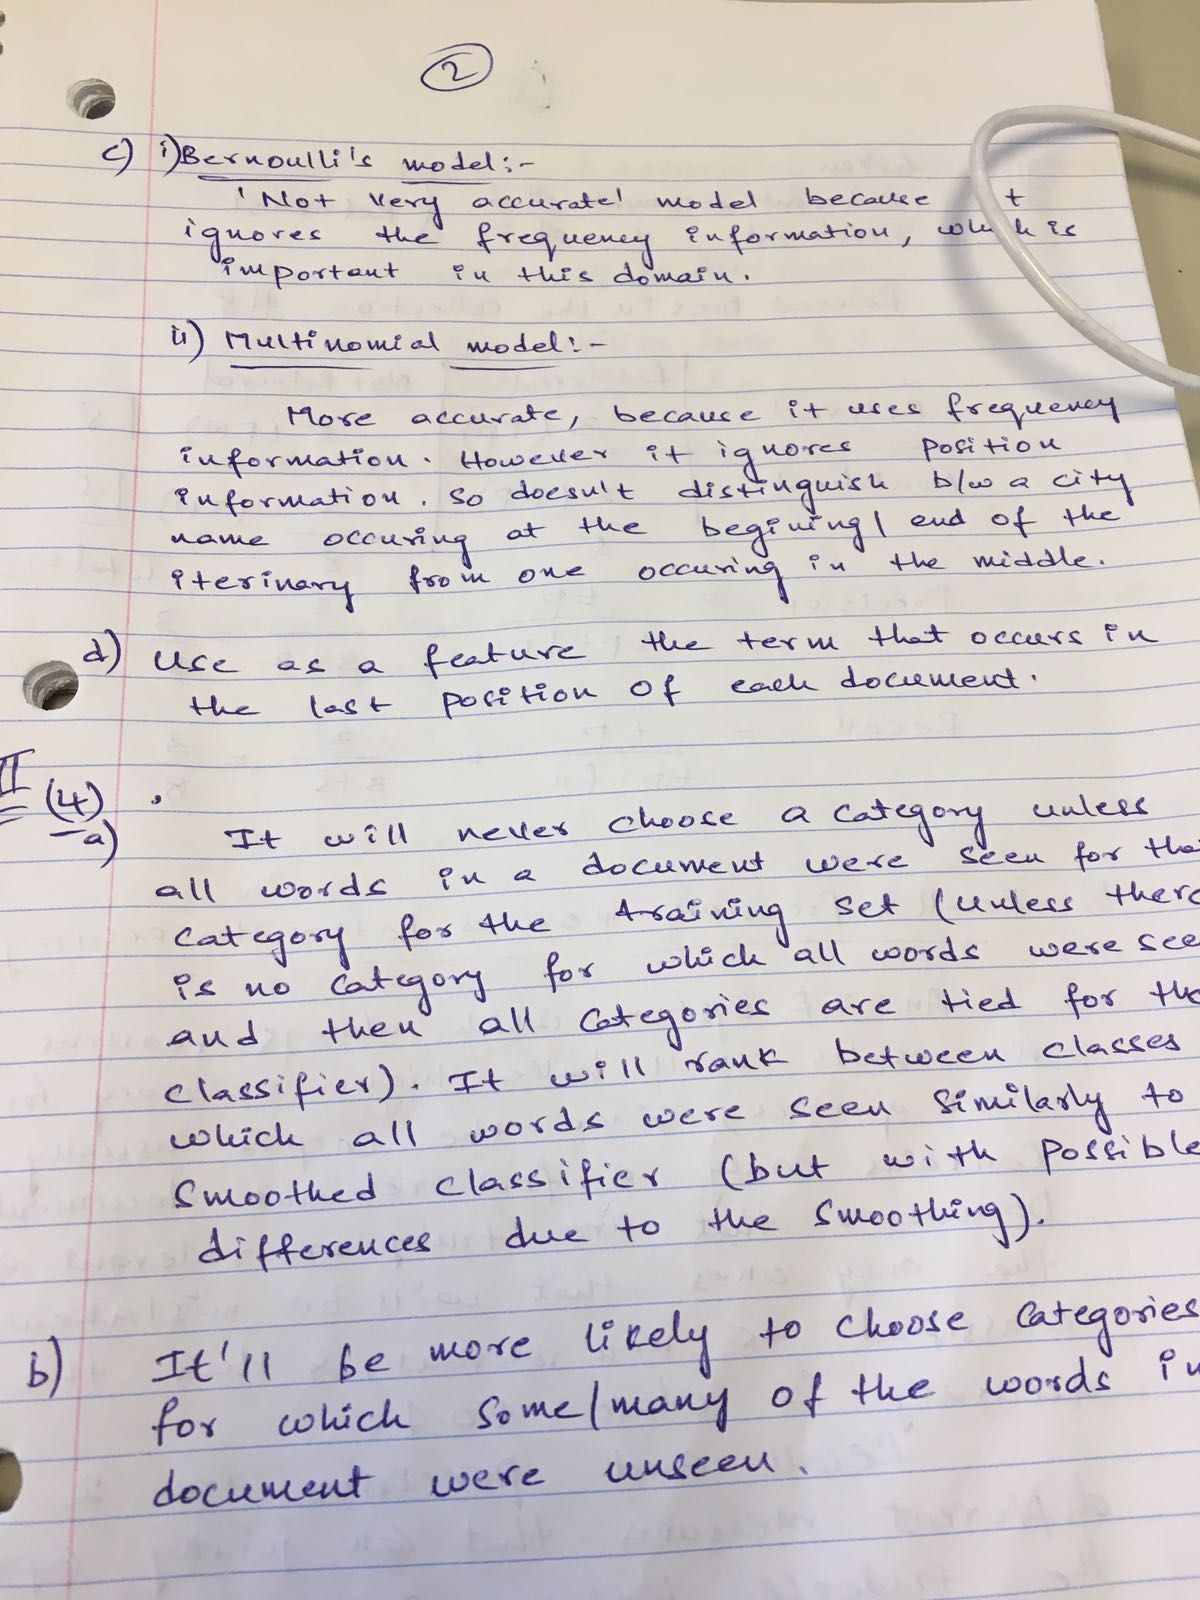 2
c) i) Bernoulli's model:-
'Not very accurate' model because t
ignores the frequency information, which is
important in this domain.
ii) Multinomial model:-
More accurate, because it uses frequency
information. However it ignores position
information. So doesn't distinguish b/w a city
name occuring at the begining/ end of the
iterinary from one occuring in the middle.
d) Use as a feature the term that occurs in
the last position of each document.
II (4)
a) It will never choose a category unless
all words in a document were seen for tha
category for the training set (unless there
is no category for which all words were see
and then all categories are tied for the
classifier). It will rank between classes
which all words were seen similarly to
smoothed classifier (but with possible
differences due to the smoothing).
b) It'll be more likely to choose categories
for which some/many of the words in
document were unseen.